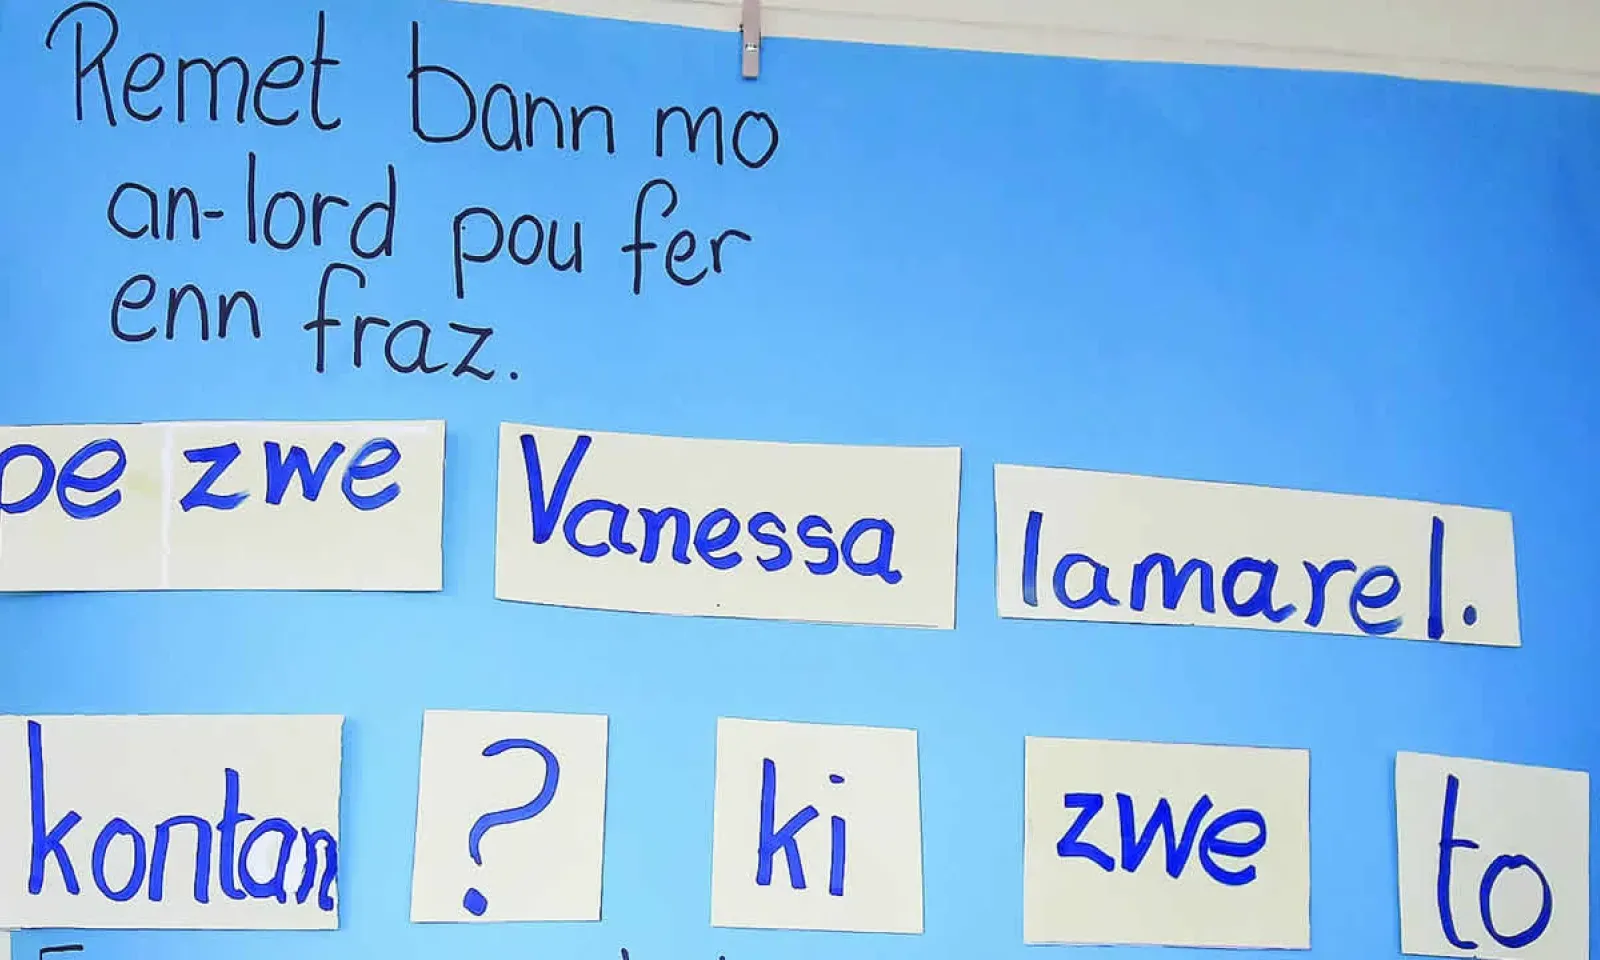 Remet bann mo
an-lord pou fer
enn fraz.
pe zwe Vanessa lamarel.
kontan ? ki zwe to